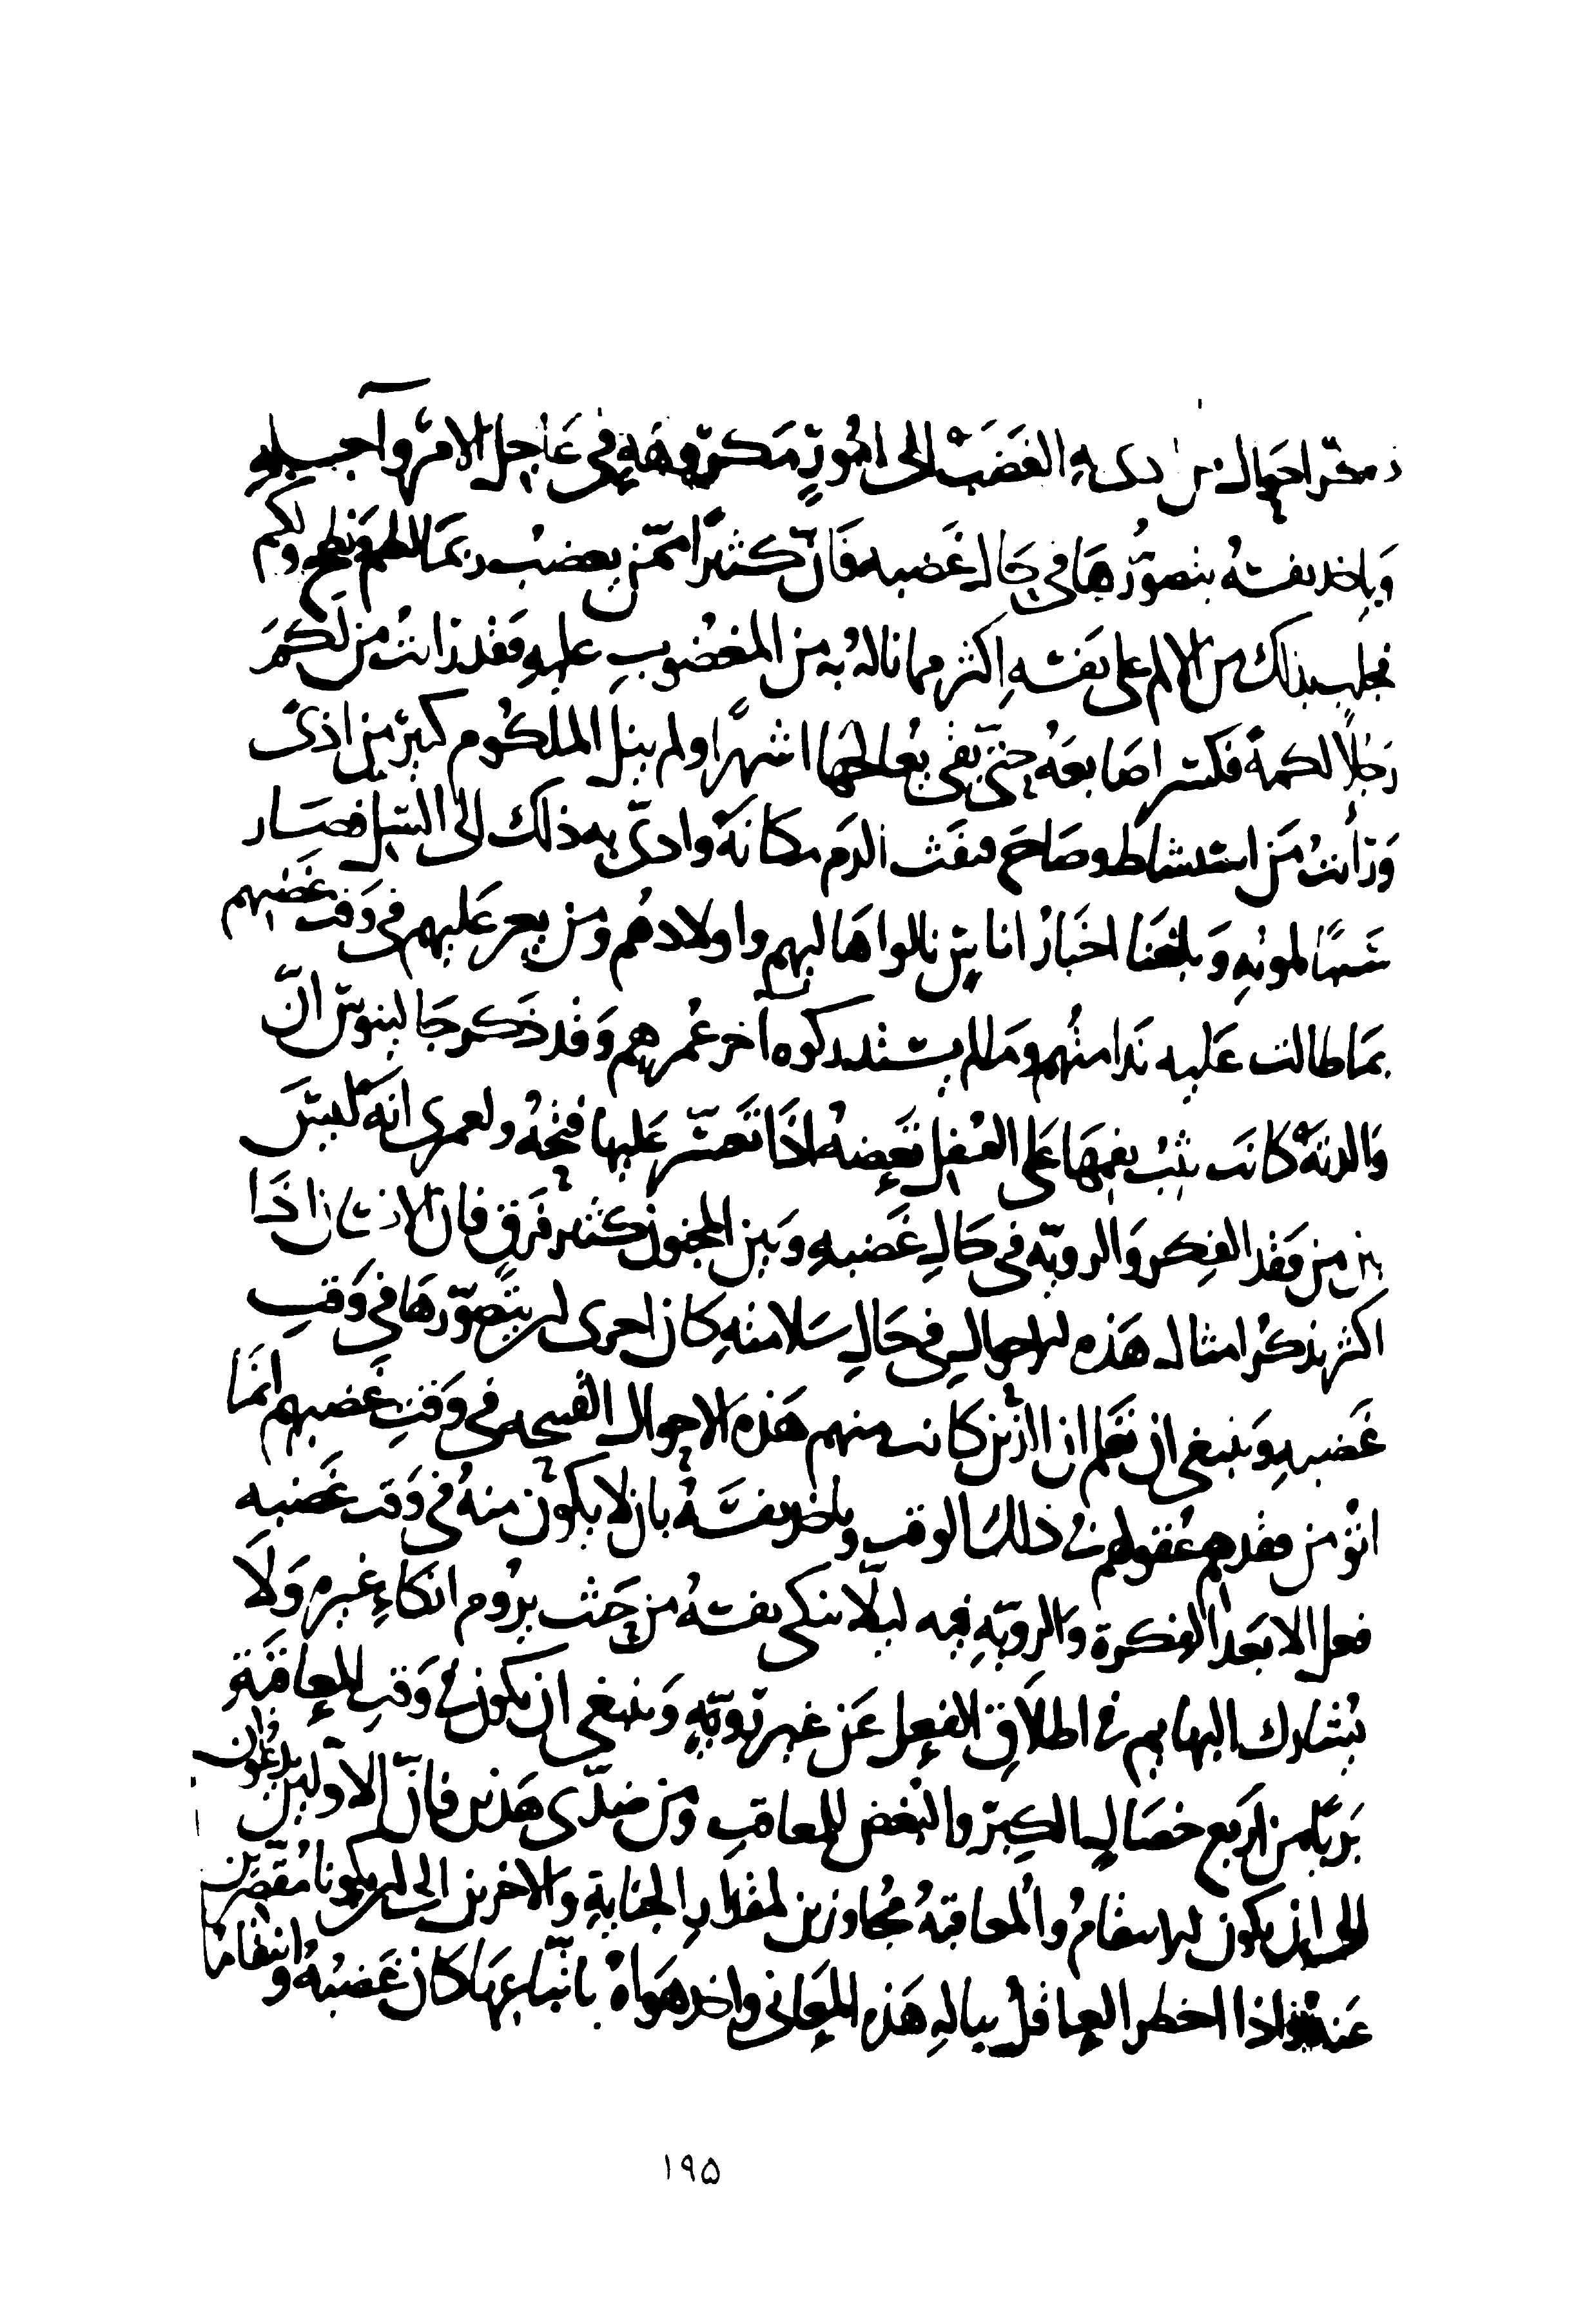 ذكر احوال من ادى به الغضب الى امور مكروهة في عاجل الامر وآجله
وياخذ نفسه بتصورها في حال غضبه فان كثيرا ممن يغضب ربما لطم ونطح ولكم
فجلب بذلك من الالم على نفسه اكثر مما ناله به من المغضوب عليه وقد رايت من لكم
رجلا لكمة فكسر اصابعه حتى بقي يعالجها اشهرا ولم ينل الملكوم كبير من اذى
ورأيت من استشاط وصاح فنفث الدم مكانه وادى به ذلك الى السل فصار
سببا لموته وبلغنا اخبار اناس نالوا اهاليهم واولادهم ومن يعز عليهم في وقت غضبهم
بما طالت عليه ندامتهم وما لم يستدركوه آخر عمرهم وقد ذكر جالينوس ان
والدته كانت تثب بفمها على القفل تعضه اذا تعسر عليها فتحه ولعمري انه ليس
بين من فقد الفكر والروية في حال غضبه وبين المجنون كثير فرق فان الانسان اذا
اكثر تذكر امثال هذه الاحوال في حال سلامته كان احرى ان يتصورها في وقت
غضبه وينبغي ان تعلم ان الذين كانت منهم هذه الاحوال القبيحة في وقت غضبهم انما
اتوا من فقدهم عقولهم في ذلك الوقت وياخذ نفسه بان لا يكون منه في وقت غضبه
فعل الا بعد الفكرة والروية فيه ليلا ينكى نفسه من حيث يروم انكاء غيره ولا
يشارك البهايم في اطلاق الفعل عن غير روية وينبغي ان يكون في وقت المعاقبة
بريا من اربع خصال الكبر والبغض للمعاقب ومن ضدي هذين فان الاولين يدعوان
الى ان يكون الانتقام والمعاقبة مجاوزين لمقدار الجناية والاخرين الى ان يكونا مقصرين
عنه واذا اخطر العاقل بباله هذه المعاني واخذ هواه باتباعها كان غضبه وانتقامه
۱۹۵